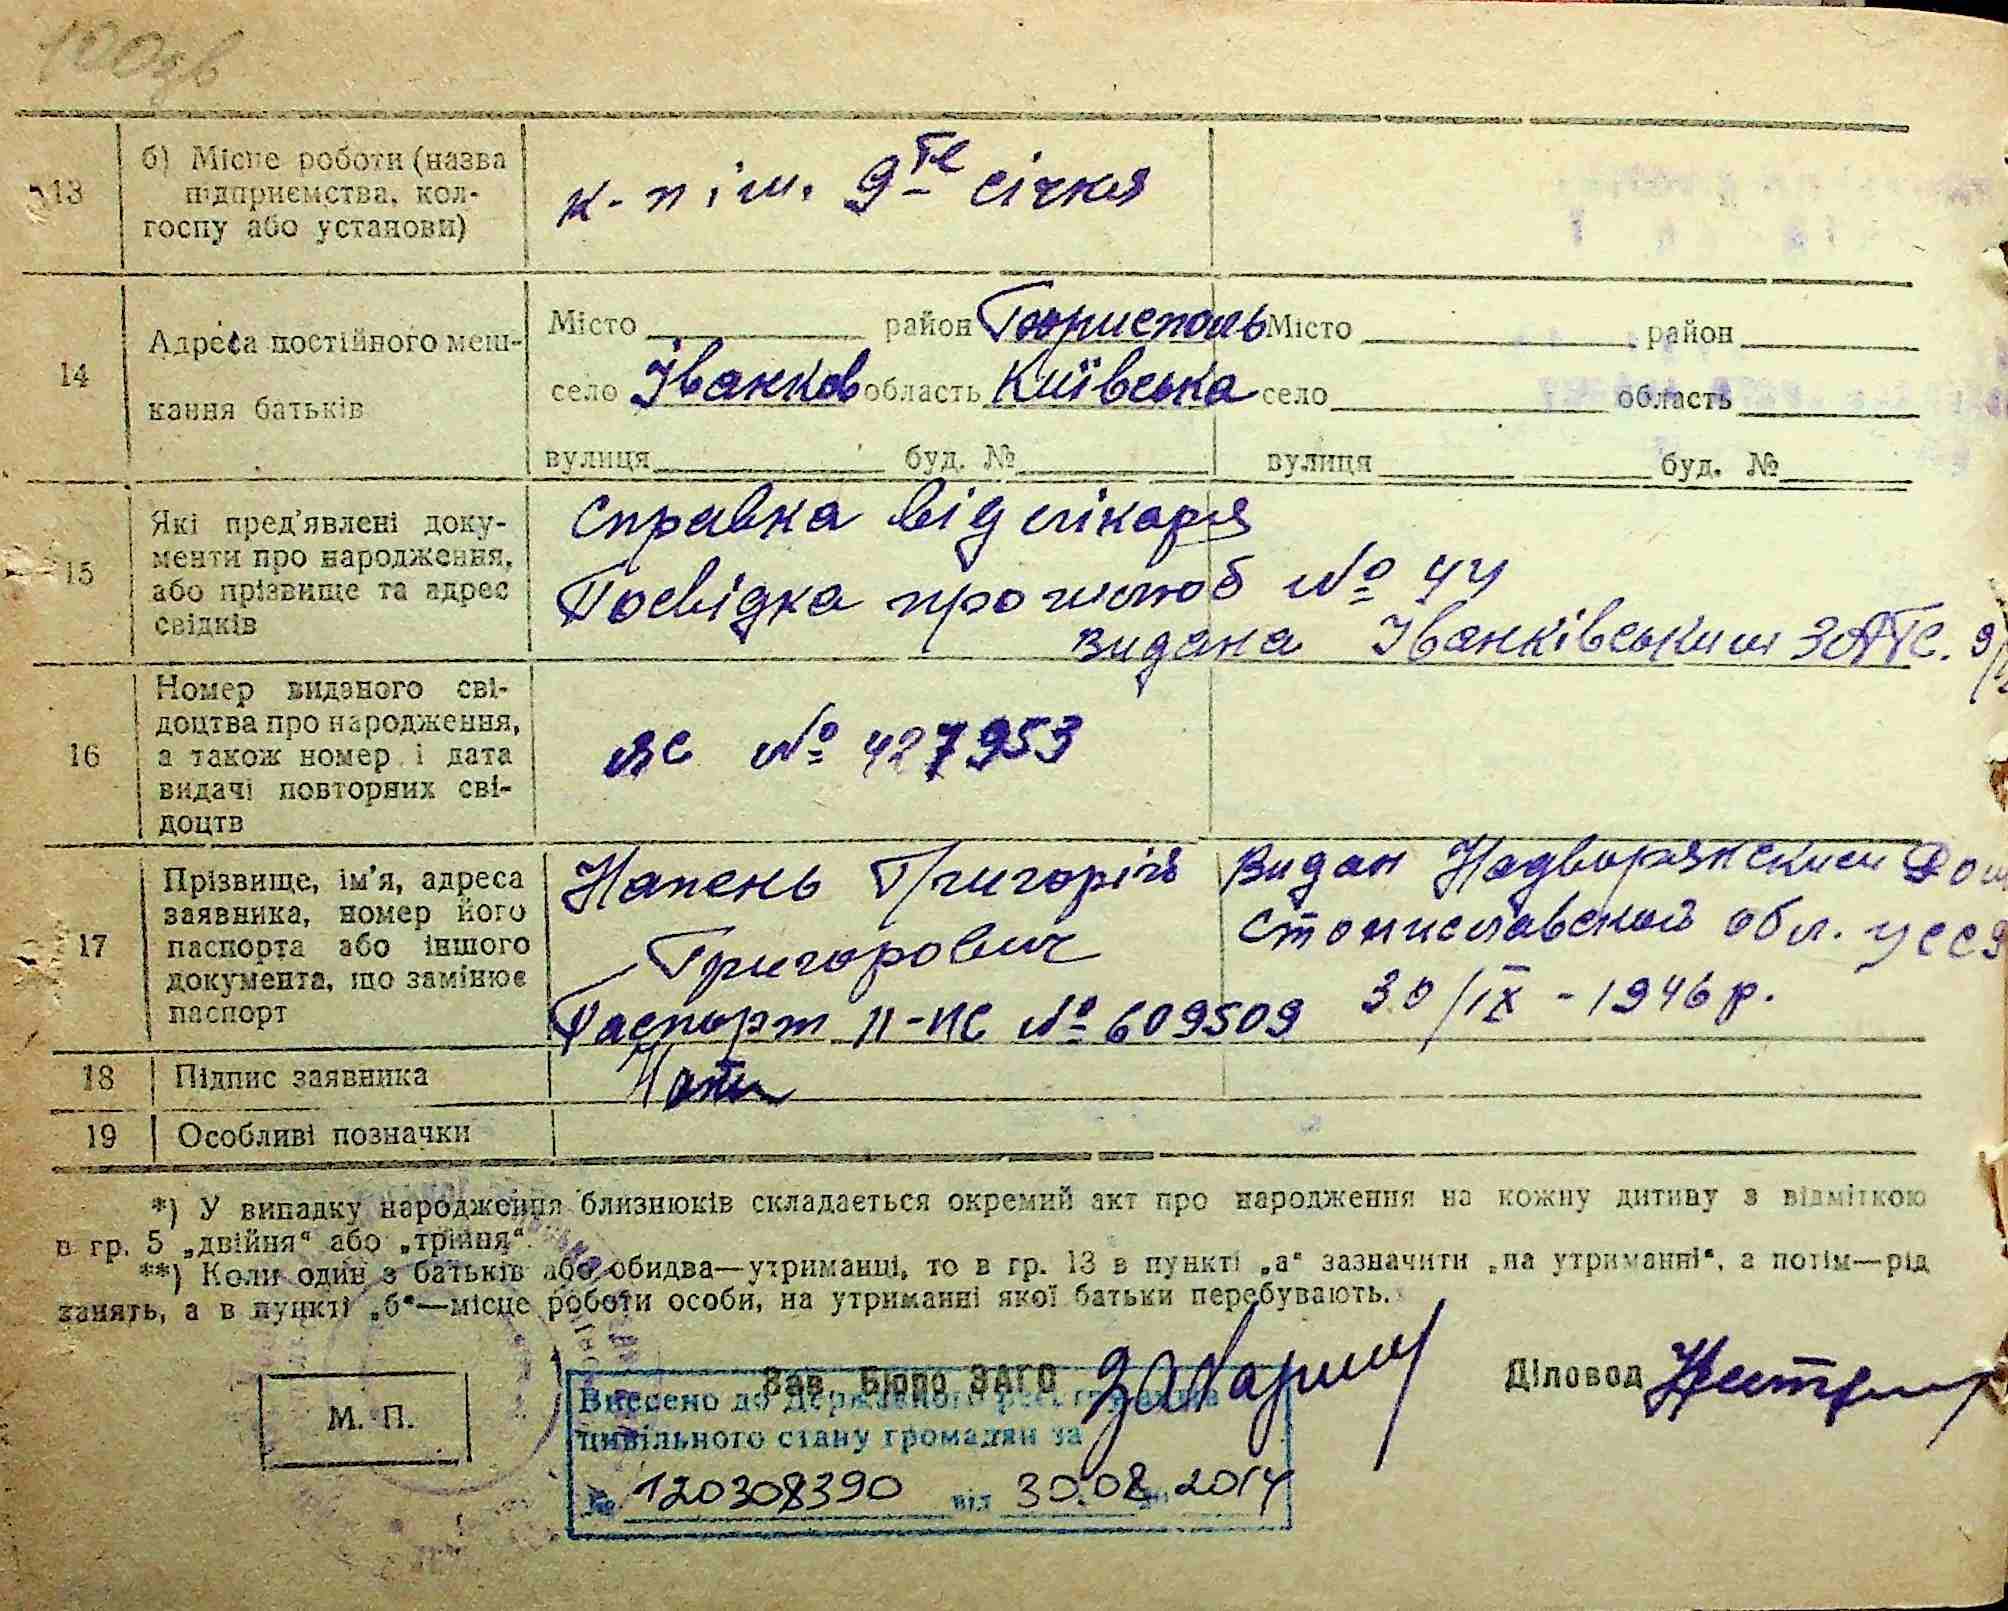 13
б) Місце роботи (назва
підприємства, кол-
госпу або установи)
к-п ім. 9те січня
14
Адреса постійного меш-
кання батьків
Місто район Бориспіль Місто район
село Іванков область Київська село область
вулиця буд. № вулиця буд. №
15
Які пред'явлені доку-
менти про народження,
або прізвище та адрес
свідків
Справка від лікаря
Посвідка про шлюб № 44
видана Іванківським ЗАГС.
16
Номер виданого сві-
доцтва про народження,
а також номер і дата
видачі повторних сві-
доцтв
ЯС № 427953
17
Прізвище, ім'я, адреса
заявника, номер його
паспорта або іншого
документа, що замінює
паспорт
Напень Григорій
Григорович
Паспорт II-ПС № 609509
Видан Надворянским
Станиславской обл. УССР
30/IX - 1946 р.
18
Підпис заявника
19
Особливі позначки
*) У випадку народження близнюків складається окремий акт про народження на кожну дитину з відміткою
в гр. 5 „двійня“ або „трійня“.
**) Коли один з батьків або обидва—утриманці, то в гр. 13 в пункті „а“ зазначити „на утриманні“, а потім—рід
занять, а в пункті „б“—місце роботи особи, на утриманні якої батьки перебувають.
Зав. Бюро ЗАГС
Діловод
М. П.
Внесено до Державного реєстру актів
цивільного стану громадян за
№ 120308390 від 30.08.2014